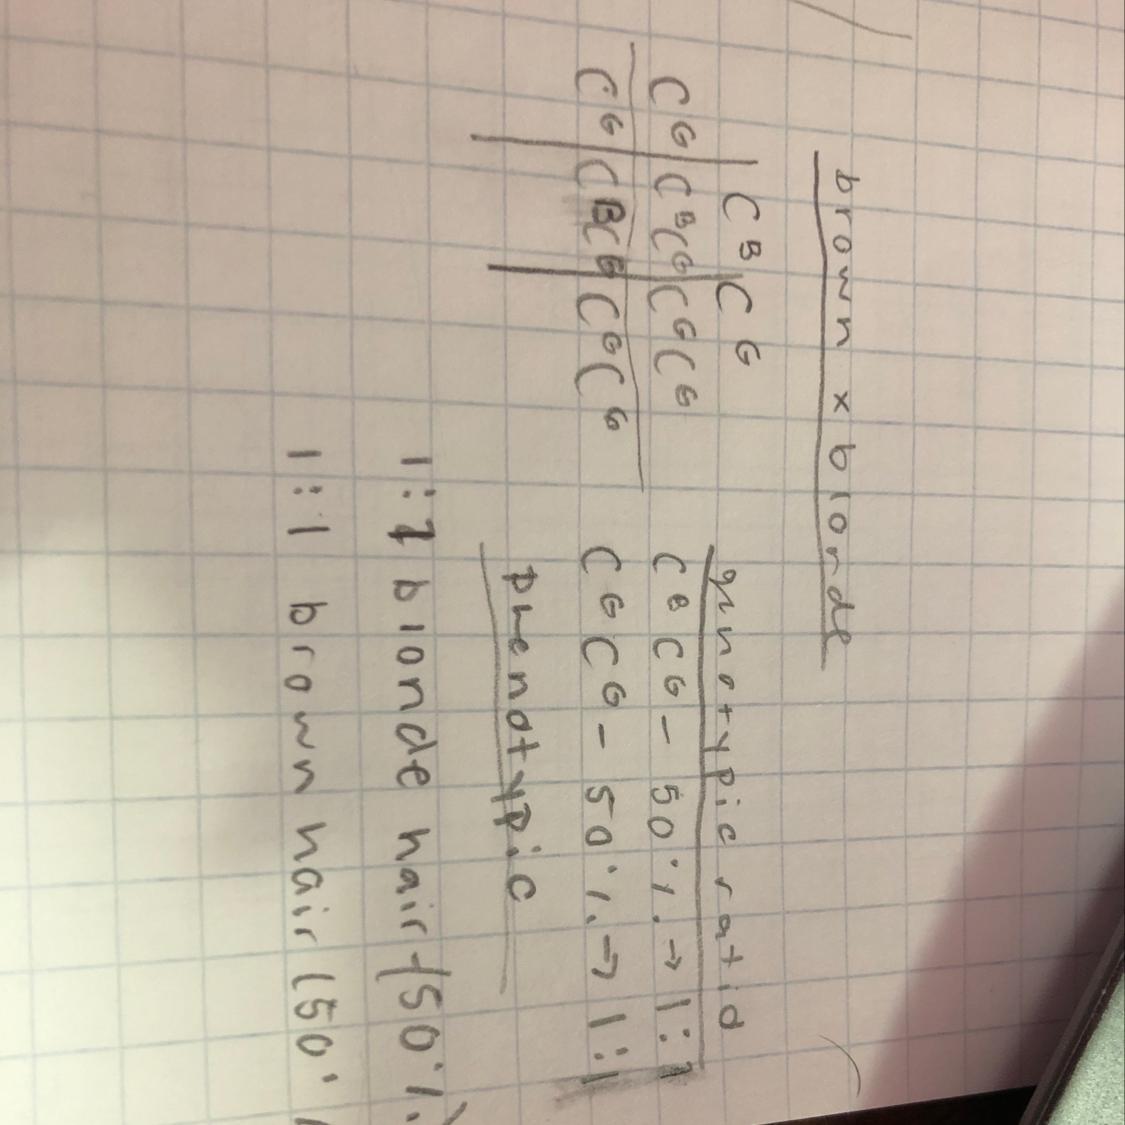 brown x blonde
C^B C^G
C^G C^BC^G C^GC^G
C^G C^BC^G C^GC^G
genotypic ratio
C^B C^G - 50% → 1:1
C^G C^G - 50% → 1:1
phenotypic
1:1 blonde hair (50%)
1:1 brown hair (50%